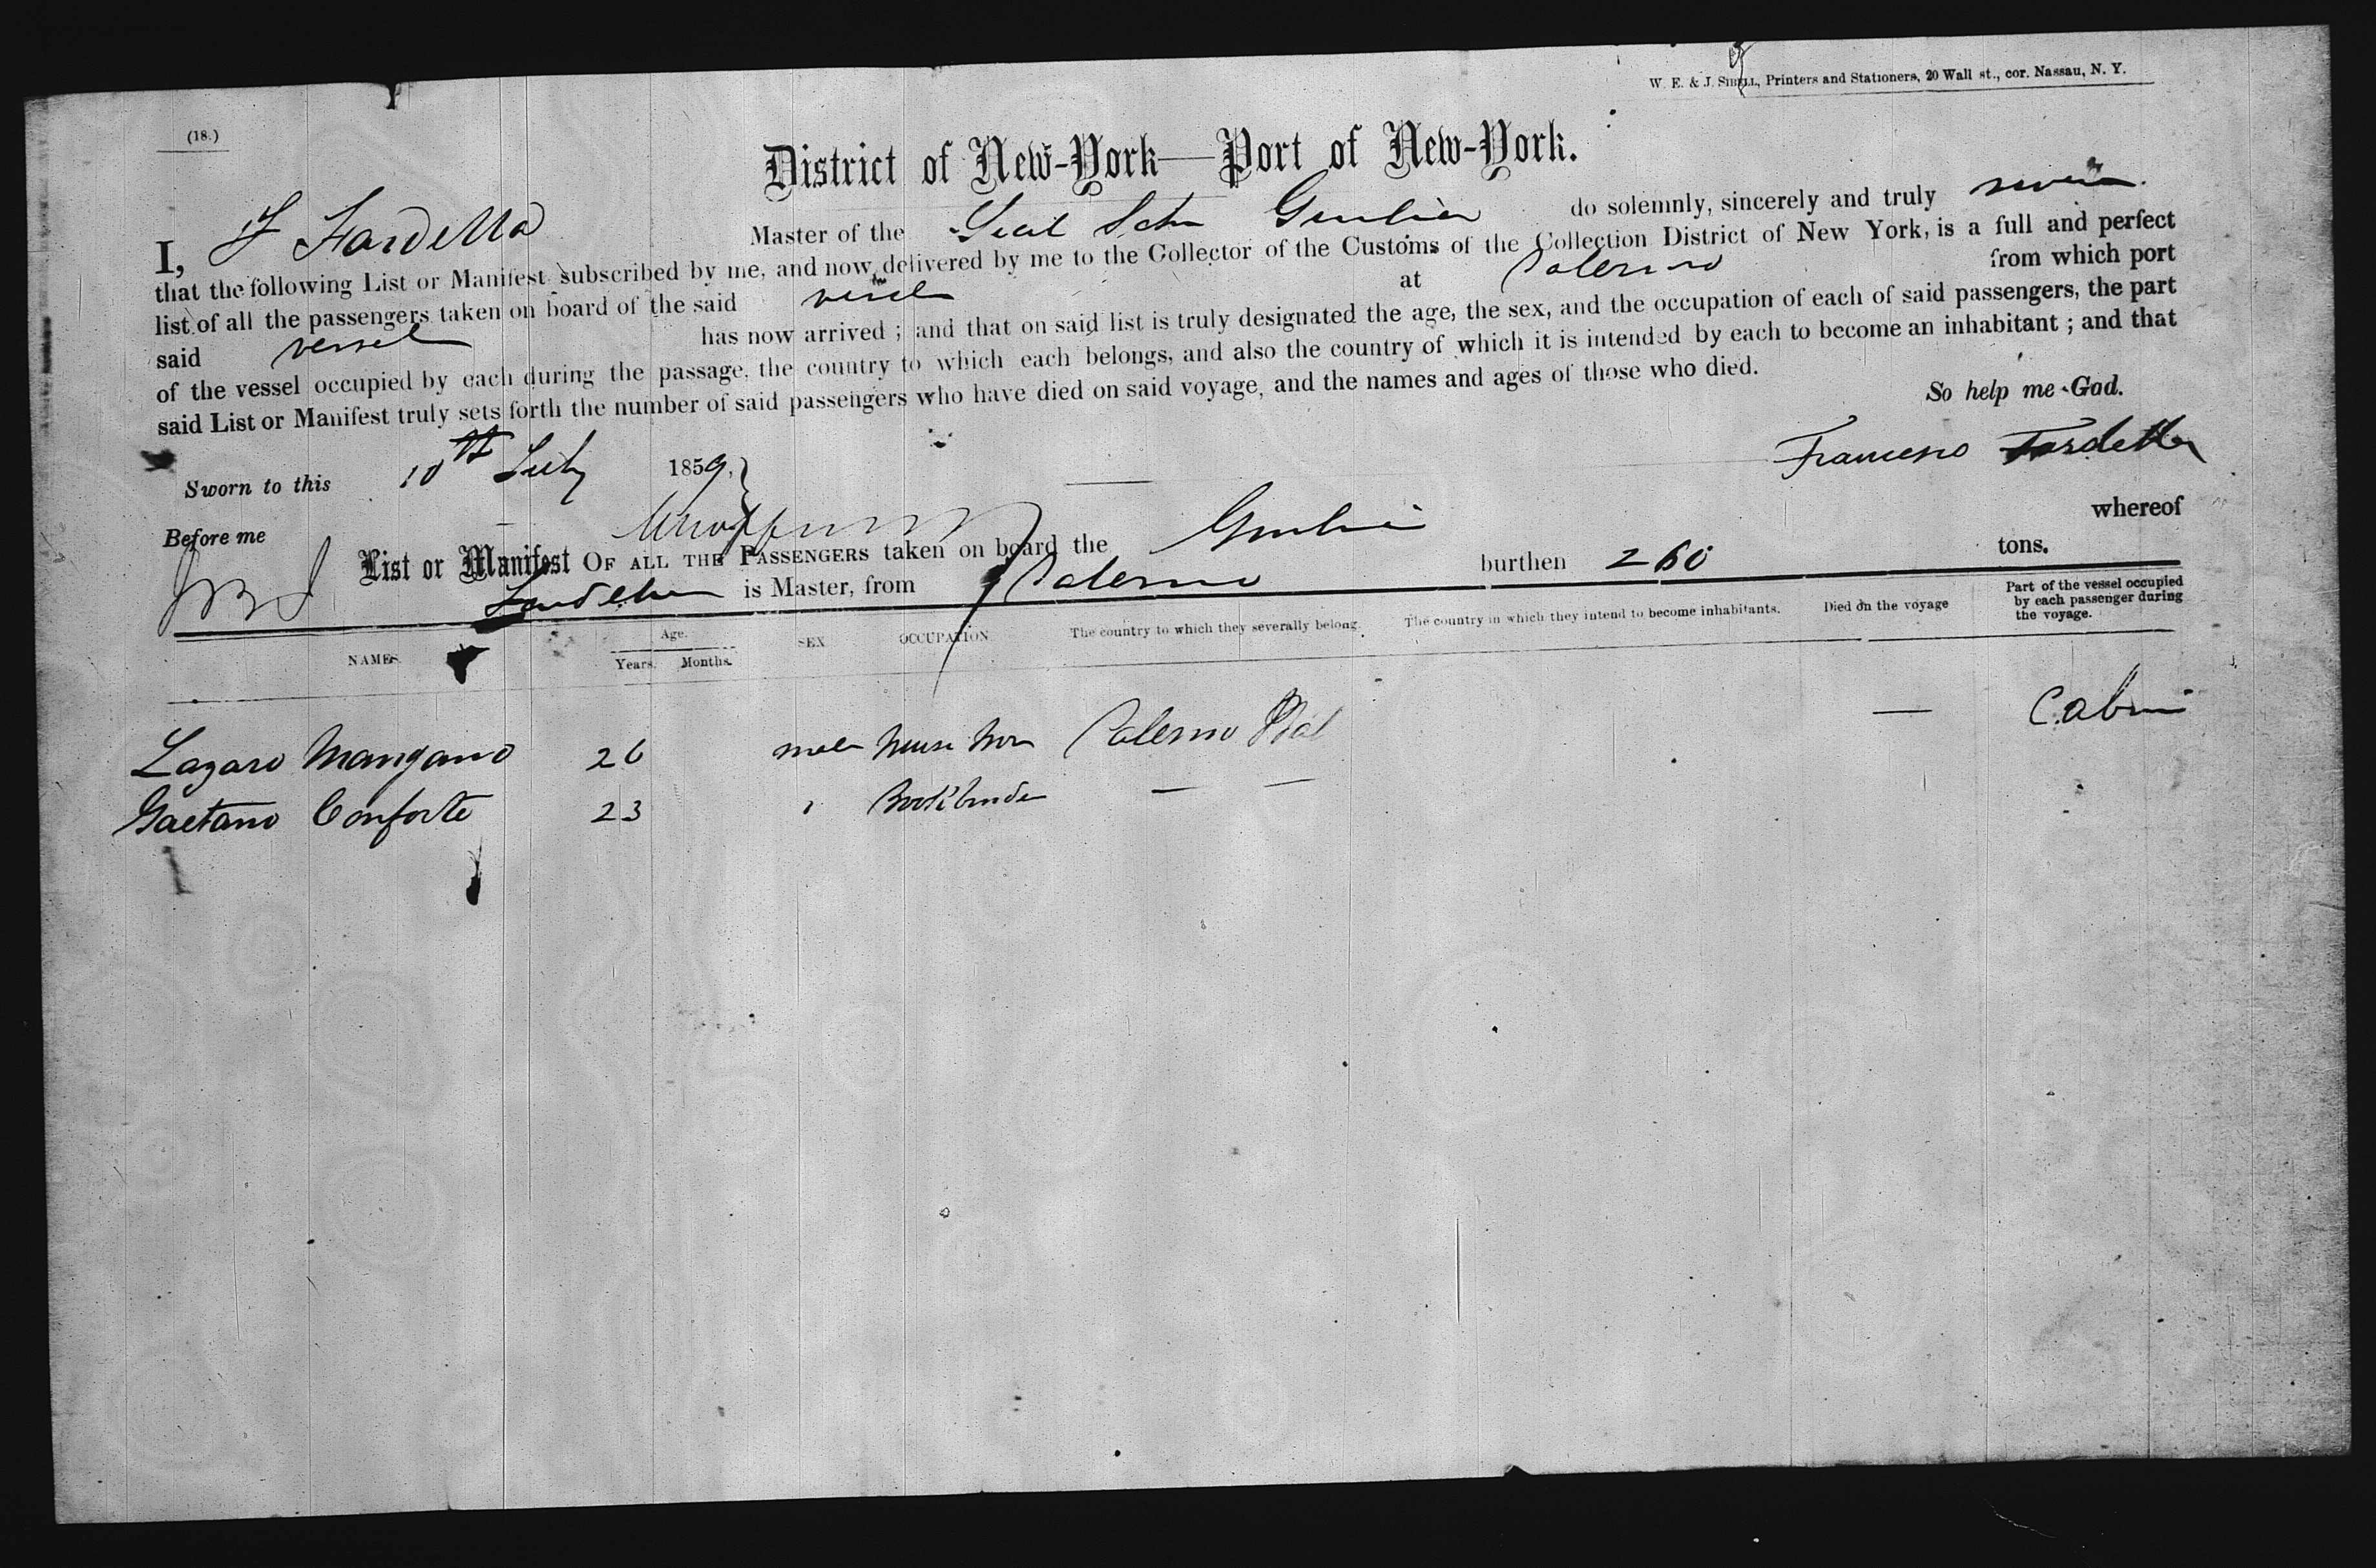 W. E. & J. SIBELL, Printers and Stationers, 20 Wall st., cor. Nassau, N. Y.
(18.)
District of New-York—Port of New-York.
I, F Fardella Master of the Sicil Schr Giulia do solemnly, sincerely and truly swear
that the following List or Manifest subscribed by me, and now delivered by me to the Collector of the Customs of the Collection District of New York, is a full and perfect
list of all the passengers taken on board of the said vessel at Palermo from which port
said vessel has now arrived ; and that on said list is truly designated the age, the sex, and the occupation of each of said passengers, the part
of the vessel occupied by each during the passage, the country to which each belongs, and also the country of which it is intended by each to become an inhabitant ; and that
said List or Manifest truly sets forth the number of said passengers who have died on said voyage, and the names and ages of those who died.
So help me God.
Sworn to this 10th July 1859,
Francesco Fardella
Before me
List or Manifest OF ALL THE PASSENGERS taken on board the Giulia burthen 260 tons. whereof
Fardella is Master, from Palermo
NAMES. Age. Years. Months. SEX OCCUPATION The country to which they severally belong. The country in which they intend to become inhabitants. Died on the voyage Part of the vessel occupied by each passenger during the voyage.
Lazaro Mangano 26 male Palermo — Cabin
Gaetano Conforte 23 " Bookbinder — —